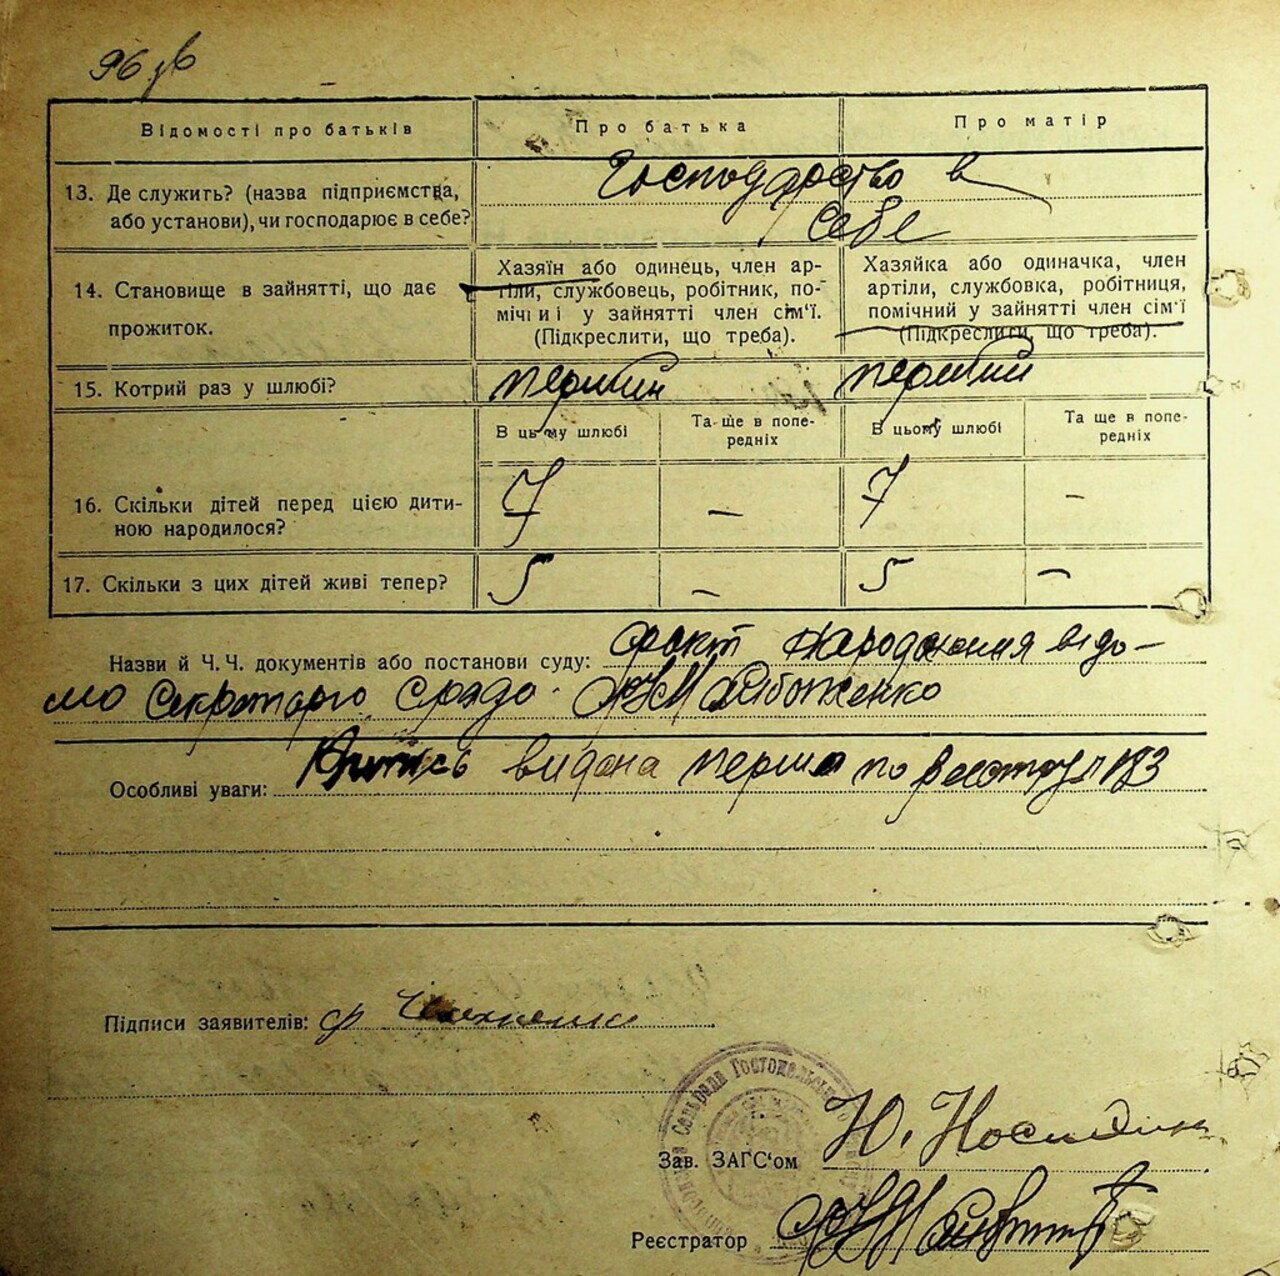 96 зв
Відомості про батьків
Про батька
Про матір
13. Де служить? (назва підприємства,
або установи), чи господарює в себе?
Господарство в
себе
14. Становище в зайнятті, що дає
прожиток.
Хазяїн або одинець, член ар-
тіли, службовець, робітник, по-
мічний у зайнятті член сім'ї.
(Підкреслити, що треба).
Хазяйка або одиначка, член
артіли, службовка, робітниця,
помічний у зайнятті член сім'ї
(Підкреслити, що треба).
15. Котрий раз у шлюбі?
перший
перший
В цьому шлюбі
Та ще в попе-
редніх
В цьому шлюбі
Та ще в попе-
редніх
16. Скільки дітей перед цією дити-
ною народилося?
7
–
7
–
17. Скільки з цих дітей живі тепер?
5
–
5
–
Назви й Ч. Ч. документів або постанови суду: факт народження відо-
мо секретарю с/ради
Особливі уваги: видана перша по
Підписи заявителів:
Сельрада Гостомельського
Зав. ЗАГС'ом
Реєстратор